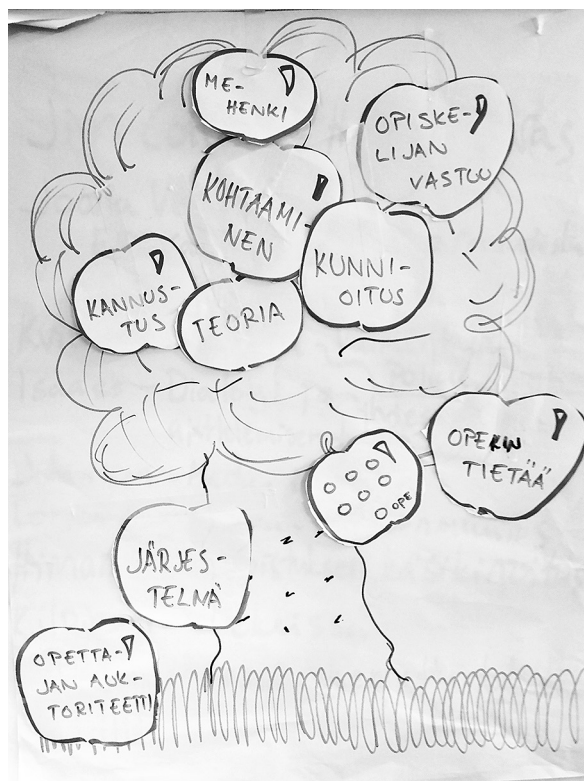 ME-
HENKI
OPISKE-
LIJAN
VASTUU
KOHTAAMI-
NEN
KUNNI-
OITUS
KANNUS-
TUS
TEORIA
OPEKIN
TIETÄÄ
OPE
JÄRJES-
TELMÄ
OPETTA-
JAN AUK-
TORITEETTI